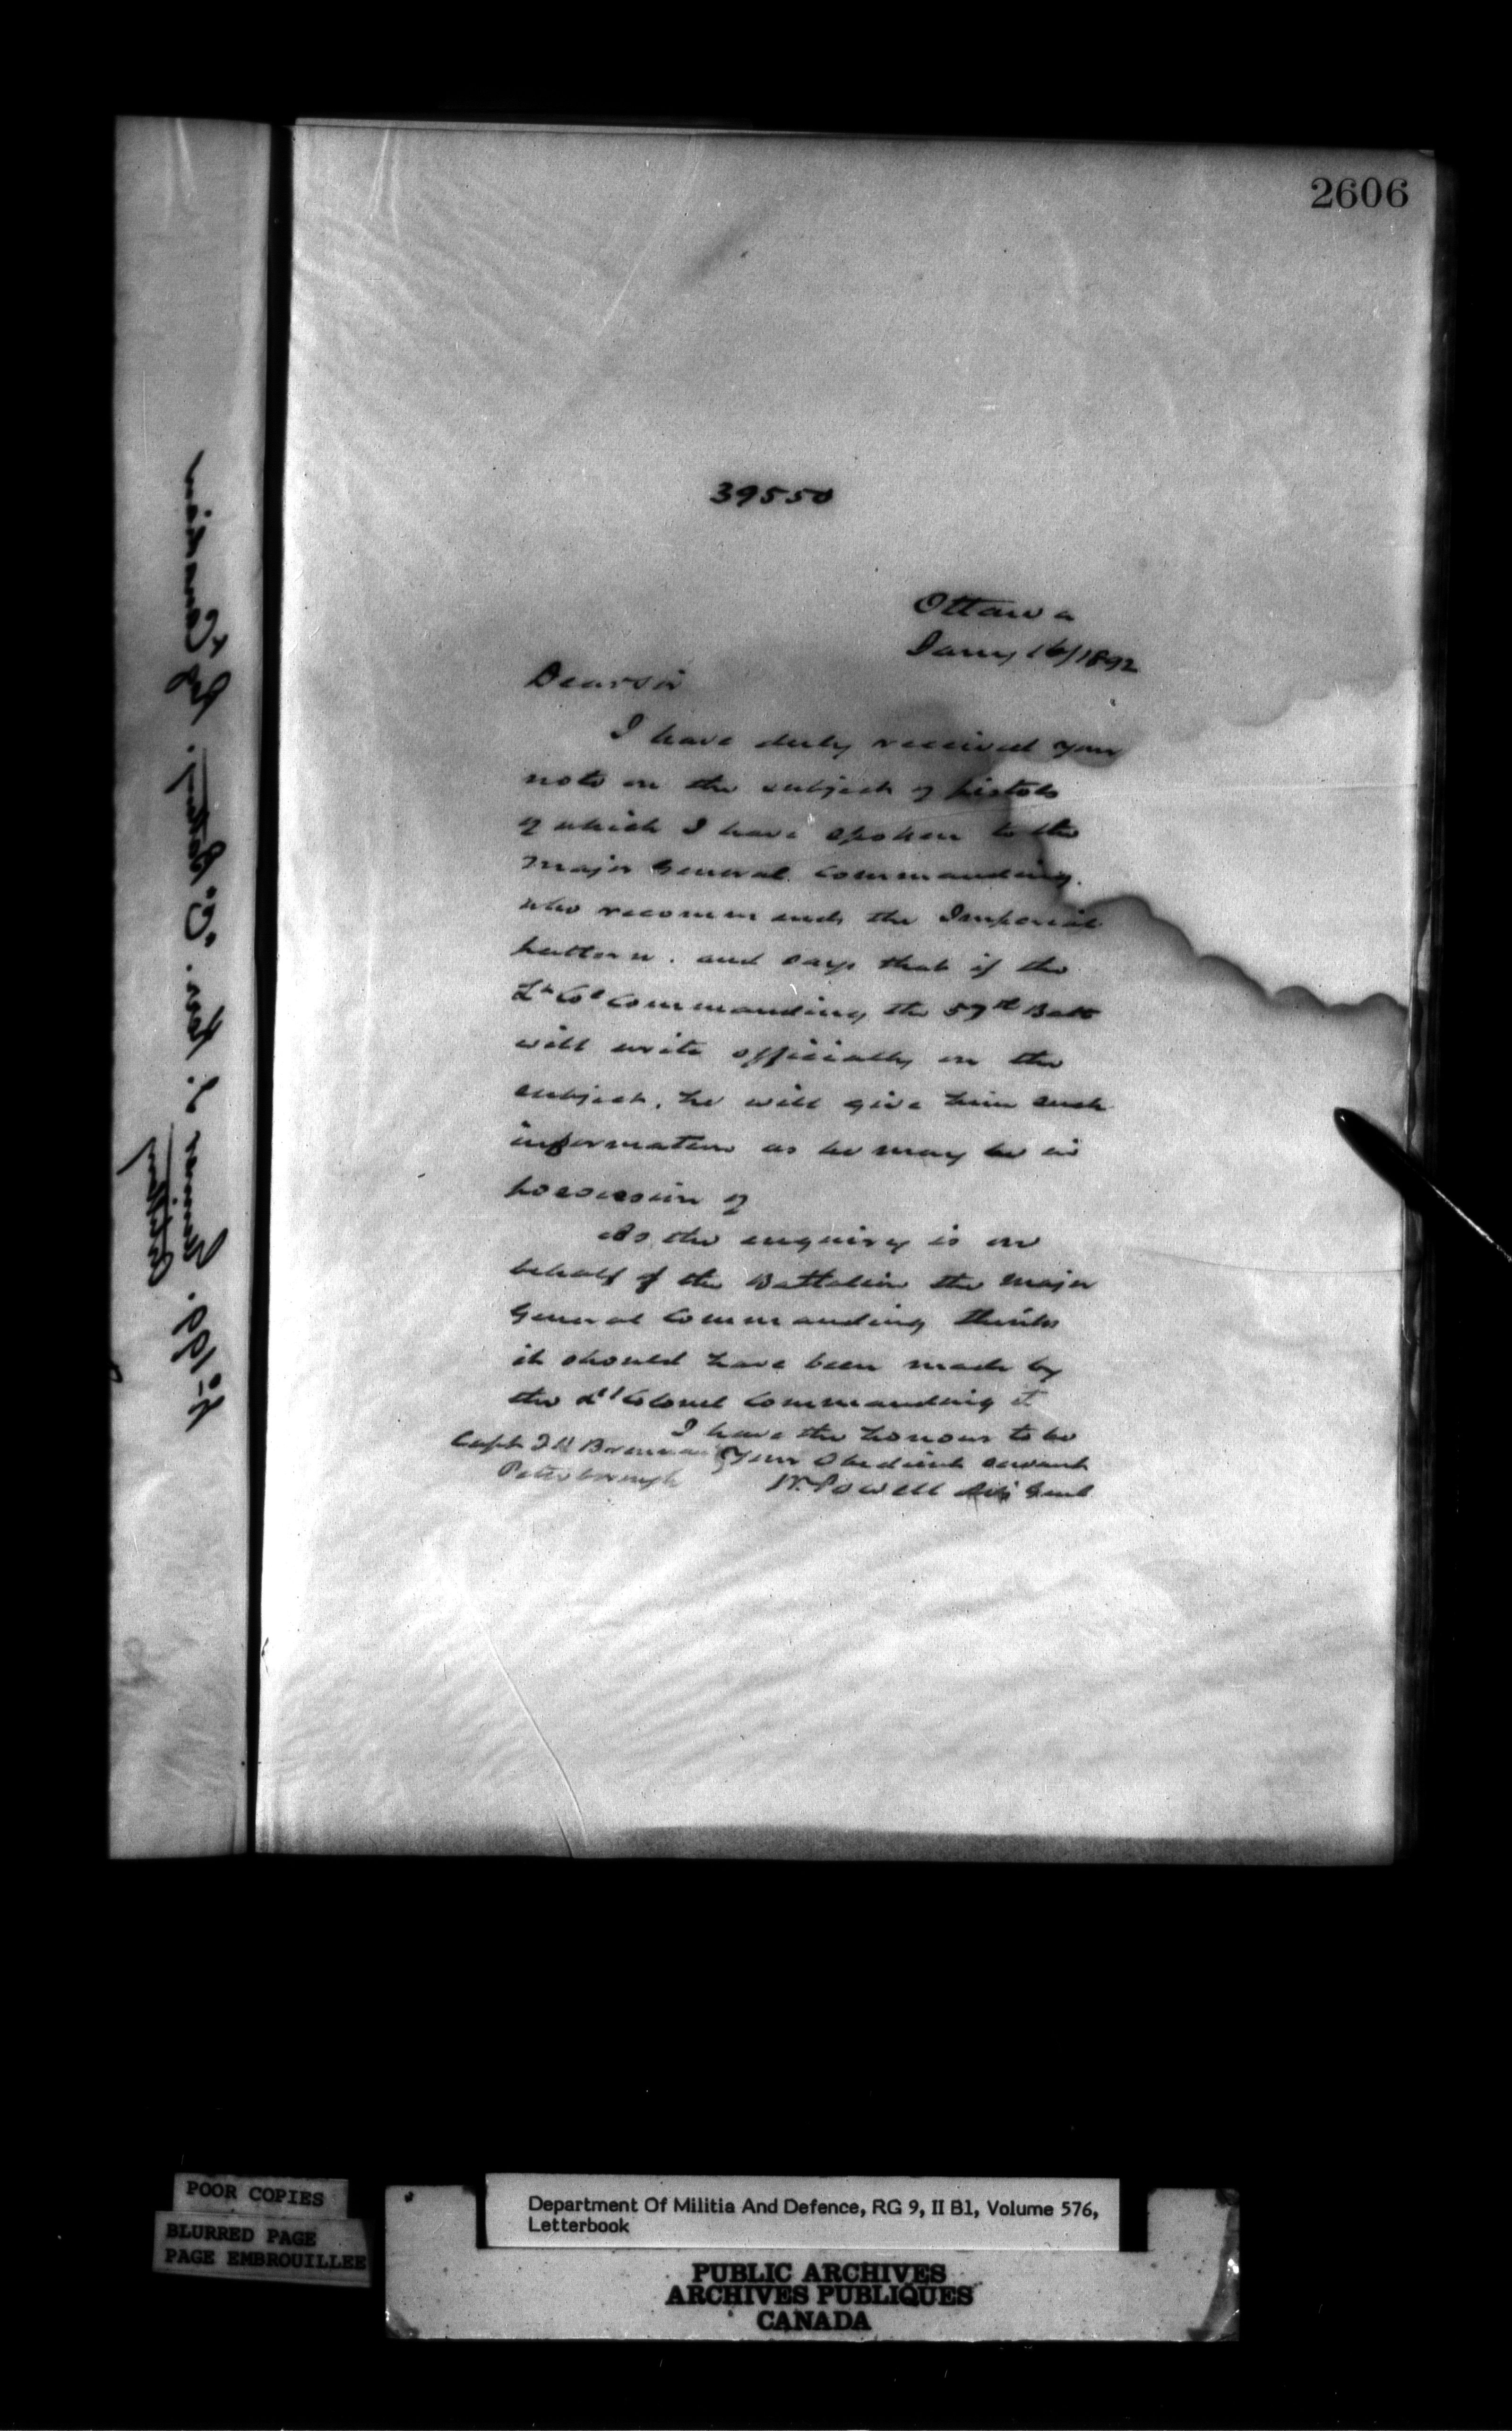 2606
39550
Ottawa
Jany 16/1892
Dear Sir
I have duly received your
note on the subject of pistols
of which I have spoken to the
Major General Commanding.
who recommends the Imperial
pattern. and says that if the
Lt Col Commanding the 57th Batt
will write officially on the
subject, he will give him such
information as he may be in
possession of
As the enquiry is on
behalf of the Battalion the Major
General Commanding thinks
it should have been made by
the Lt Colonel Commanding it
I have the honour to be
Your Obedient servant
W. Powell Adj Genl
Capt Brennan
Peterborough
POOR COPIES
BLURRED PAGE
PAGE EMBROUILLEE
Department Of Militia And Defence, RG 9, II B1, Volume 576,
Letterbook
PUBLIC ARCHIVES
ARCHIVES PUBLIQUES
CANADA